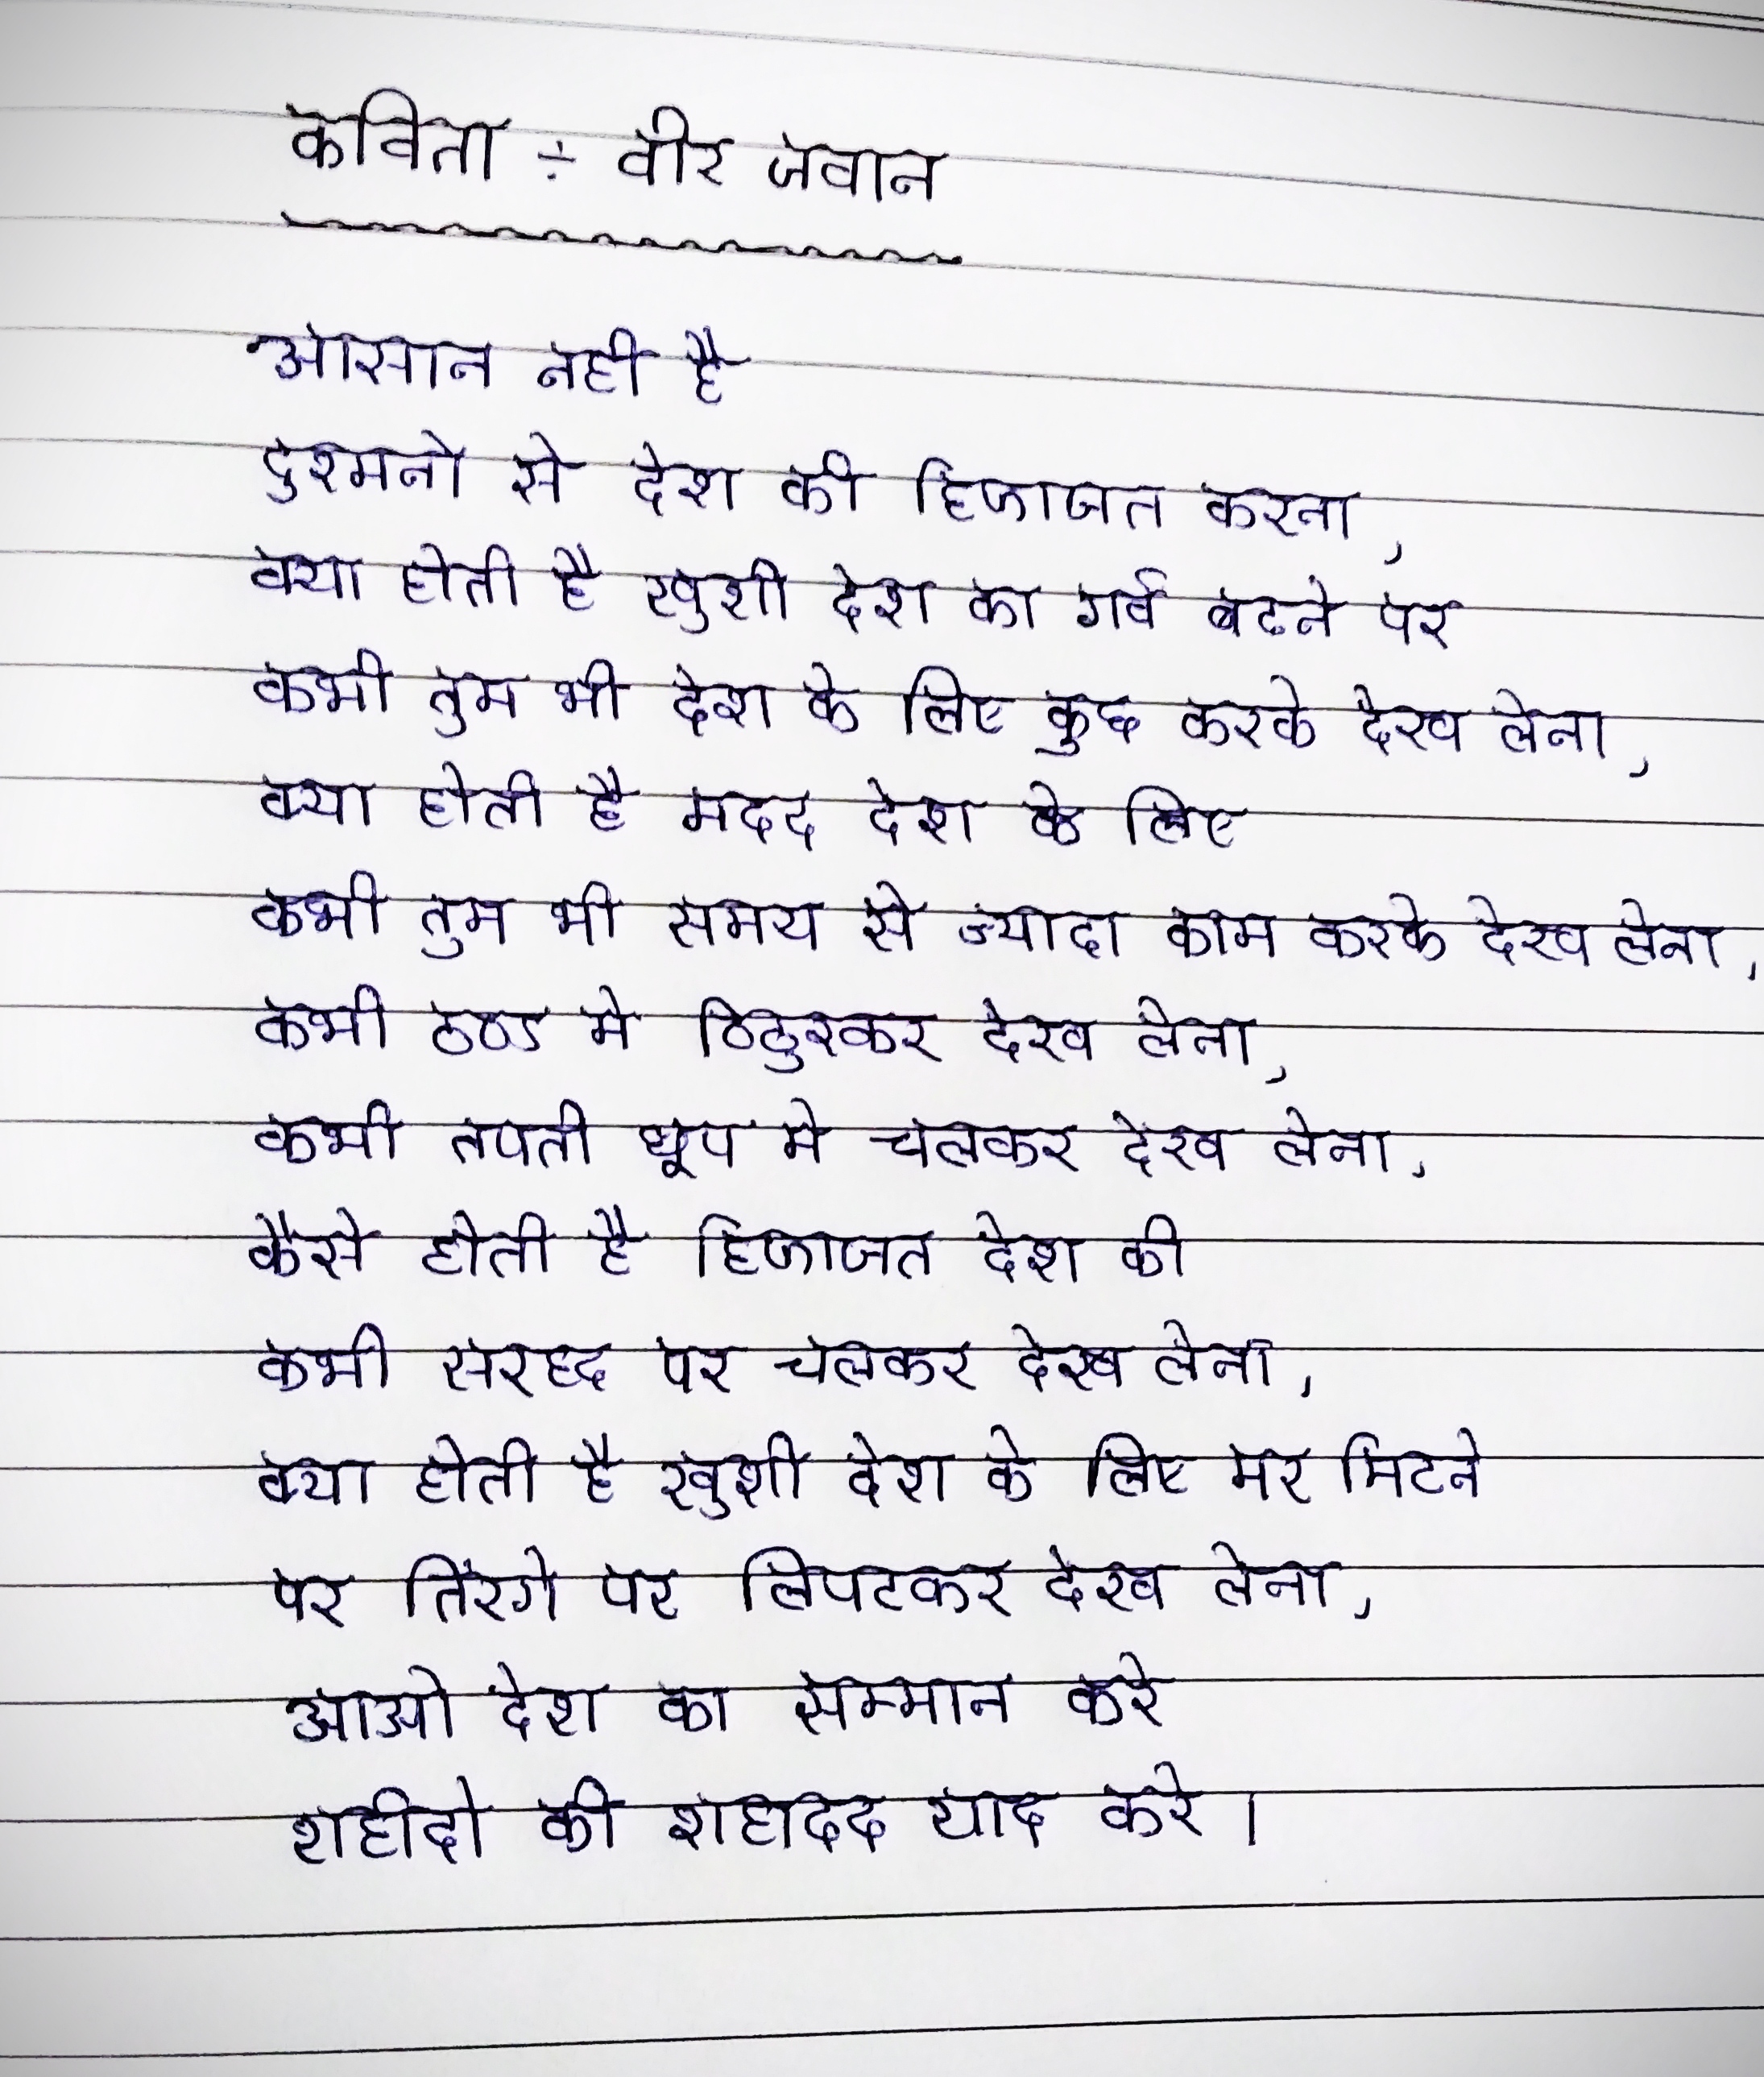 कविता ÷ वीर जवान
आसान नही है
दुश्मनो से देश की हिफाजत करना,
क्या होती है खुशी देश का गर्व बढने पर
कभी तुम भी देश के लिए कुछ करके देख लेना,
क्या होती है मदद देश के लिए
कभी तुम भी समय से ज्यादा काम करके देख लेना,
कभी ठण्ड मे ठिठुरकर देख लेना,
कभी तपती धूप मे चलकर देख लेना,
कैसे होती है हिफाजत देश की
कभी सरहद पर चलकर देख लेना,
क्या होती है खुशी देश के लिए मर मिटने
पर तिरंगे पर लिपटकर देख लेना,
आओ देश का सम्मान करे
शहीदो की शहादद याद करे।